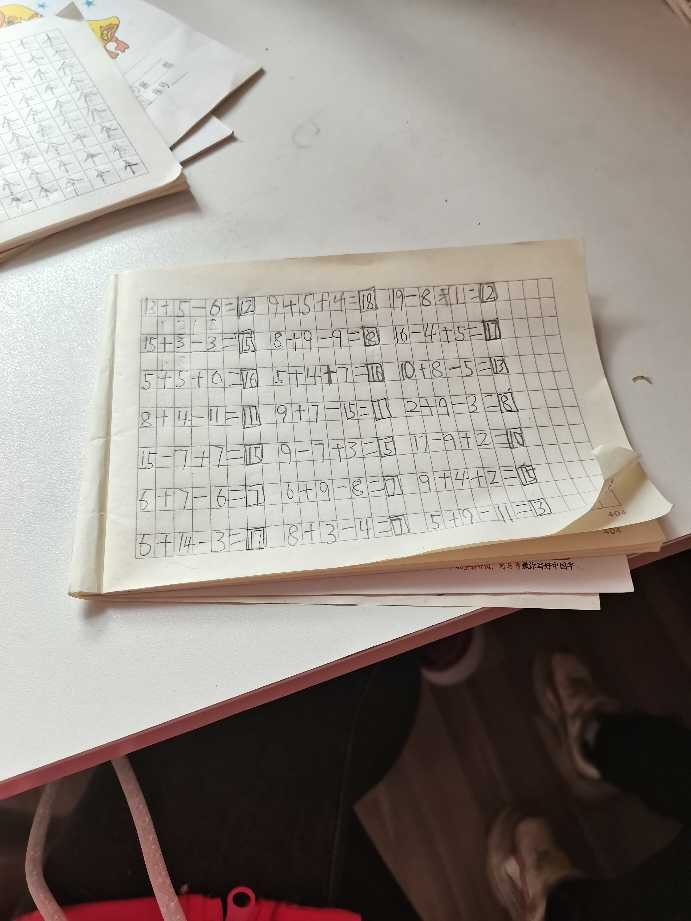 13+5-6=12 9+5+4=18 19-8+11=12
15+3-3=15 8+9-9=8 16-4+5=17
5+5+6=16 5+4+7=16 10+8-5=13
8+4-11=1 9+7-15=1 2+9-3=8
15-7+7=15 9-7+3=5 17-9+2=10
6+7-6=7 6+9-8=7 9+4+2=15
6+14-3=17 8+3-4=7 5+9-11=3
404
404